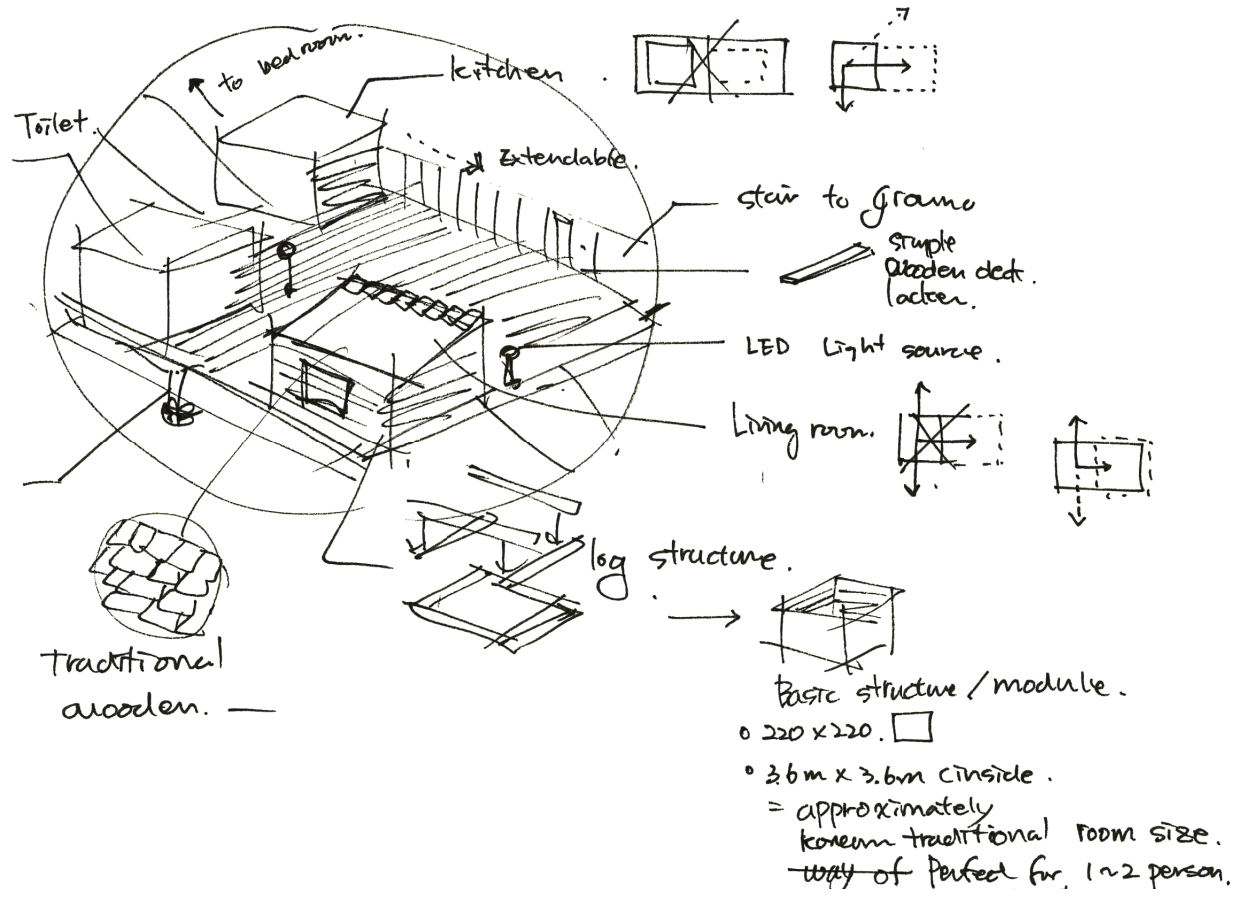 to bedroom.
kitchen
Toilet.
Extendable.
stair to ground
simple
wooden deck.
LED Light source.
Living room.
log structure.
Traditional
wooden.
Basic structure / module.
220 x 220.
3.6m x 3.6m cinside.
= approximately
korean traditional room size.
way of Perfect for 1~2 person.